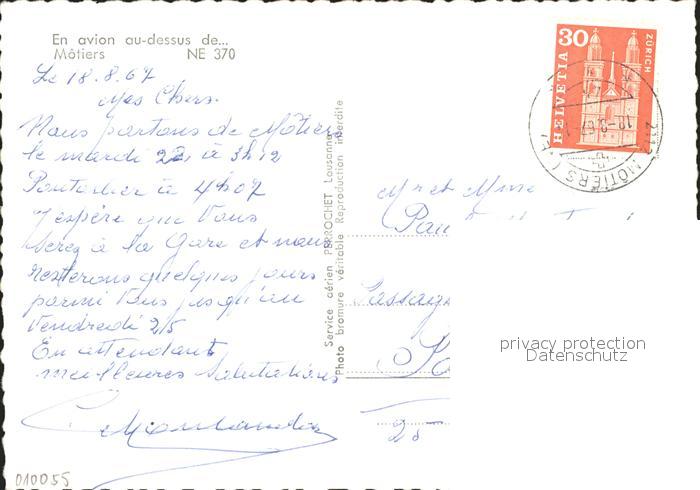 En avion au-dessus de...
Môtiers NE 370
Le 18.8.67
Mes Chers.
Nous partons de Môtiers
le mardi 22 à 3h12
Pontarlier à 4h07
J'espère que Vous
Serez à la Gare et nous
resterons quelques jours
parmi Vous jusqu'au
Vendredi 25
En attendant
meilleures Salutations
Service aérien PERROCHET Lausanne
Photo bromure véritable Reproduction interdite
30
HELVETIA
ZÜRICH
2112 MÔTIERS (NE)
18-8-67
Mr et Mme
Passag
25
privacy protection
Datenschutz
010055